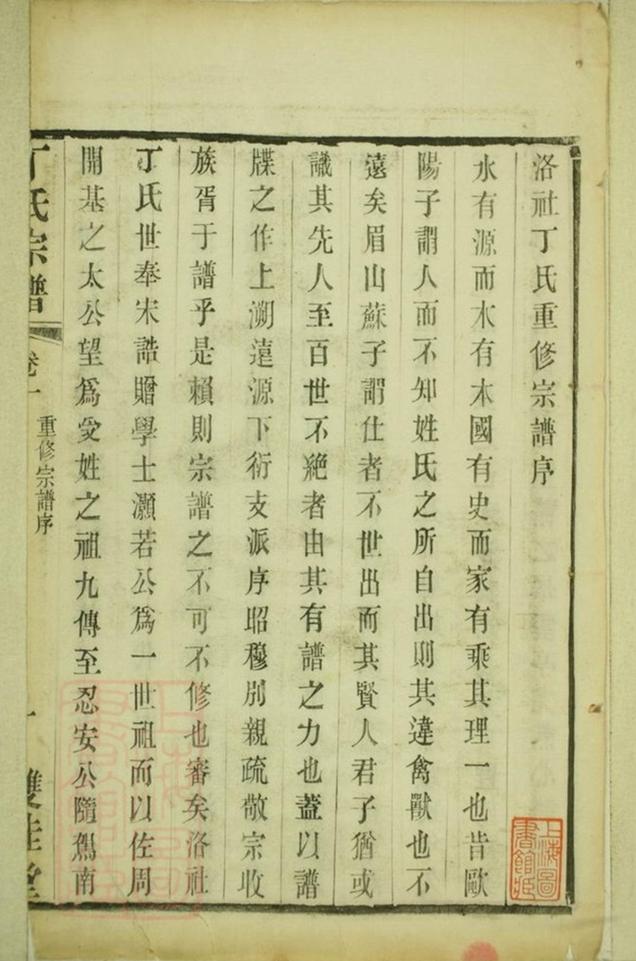 洛社丁氏重修宗譜序
水有源而木有本國有史而家有乘其理一也昔歐
陽子謂人而不知姓氏之所自出則其違禽獸也不
遠矣眉山蘇子謂仕者不世出而其賢人君子猶或
識其先人至百世不絶者由其有譜之力也蓋以譜
牒之作上溯遠源下衍支派序昭穆別親疏敬宗收
族胥于譜乎是賴則宗譜之不可不修也審矣洛社
丁氏世奉宋誥贈學士灝若公爲一世祖而以佐周
開基之太公望爲受姓之祖九傳至忍安公隨駕南
丁氏宗譜
卷一
重修宗譜序
一
雙桂堂
上海圖
書館藏